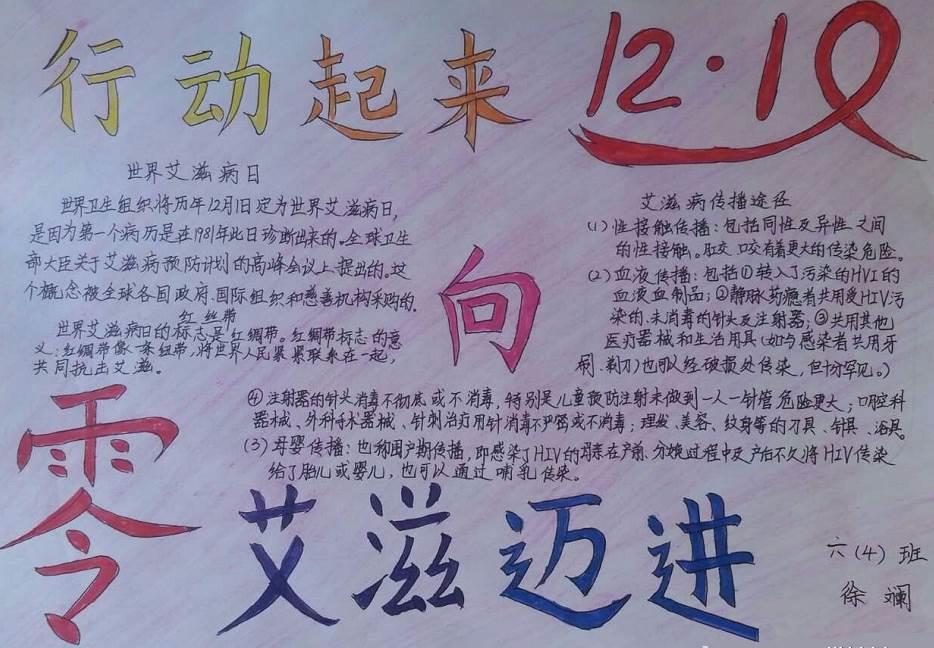 行动起来 12·1
世界艾滋病日
世界卫生组织将历年12月1日定为世界艾滋病日,
是因为第一个病历是在1981年此日诊断出来的。全球卫生
部大臣关于艾滋病预防计划的高峰会议上提出的。这
个概念被全球各国政府、国际组织和慈善机构采购的。
红丝带
世界艾滋病日的标志是红绸带。红绸带标志的意
义:红绸带像一条纽带,将世界人民紧紧联系在一起,
共同抗出艾滋。
向
艾滋病传播途径
(1)性接触传播:包括同性及异性之间
的性接触。肛交、口交有着更大的传染危险。
(2)血液传播:包括①转入了污染的HVI的
血液血制品;②静脉药瘾者共用受HIV污
染的、未消毒的针头及注射器;③共用其他
医疗器械和生活用具(如与感染者共用牙
刷、剃刀)也可以经破损处传染,但十分罕见。)
④注射器的针头消毒不彻底或不消毒,特别是儿童预防注射未做到一人一针管危险更大;口腔科
器械、外科手术器械、针刺治疗用针消毒不严密或不消毒;理发、美容、纹身等的刀具、针具、浴具。
(3)母婴传播:也称围产期传播,即感染了HIV的母亲在产前、分娩过程中及产后不久将HIV传染
给了胎儿或婴儿,也可以通过哺乳传染。
零艾滋迈进
六(4)班
徐斓